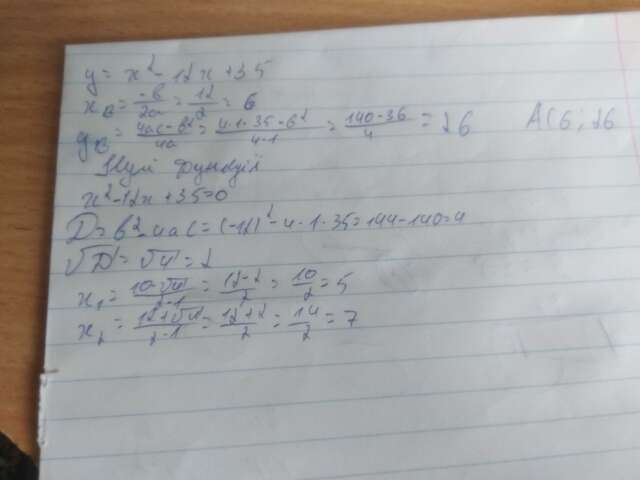 y = x² - 12x + 35
x_в = -в/2a = 12/2 = 6
y_в = 4ac-в²/4a = 4·1·35-6²/4·1 = 140-36/4 = 26 A(6; 26
Нулі функції
x² - 12x + 35 = 0
D = в² - 4ac = (-12)² - 4·1·35 = 144 - 140 = 4
√D = √4 = 2
x₁ = 10-√4/2·1 = 12-2/2 = 10/2 = 5
x₂ = 12+√4/2·1 = 12+2/2 = 14/2 = 7